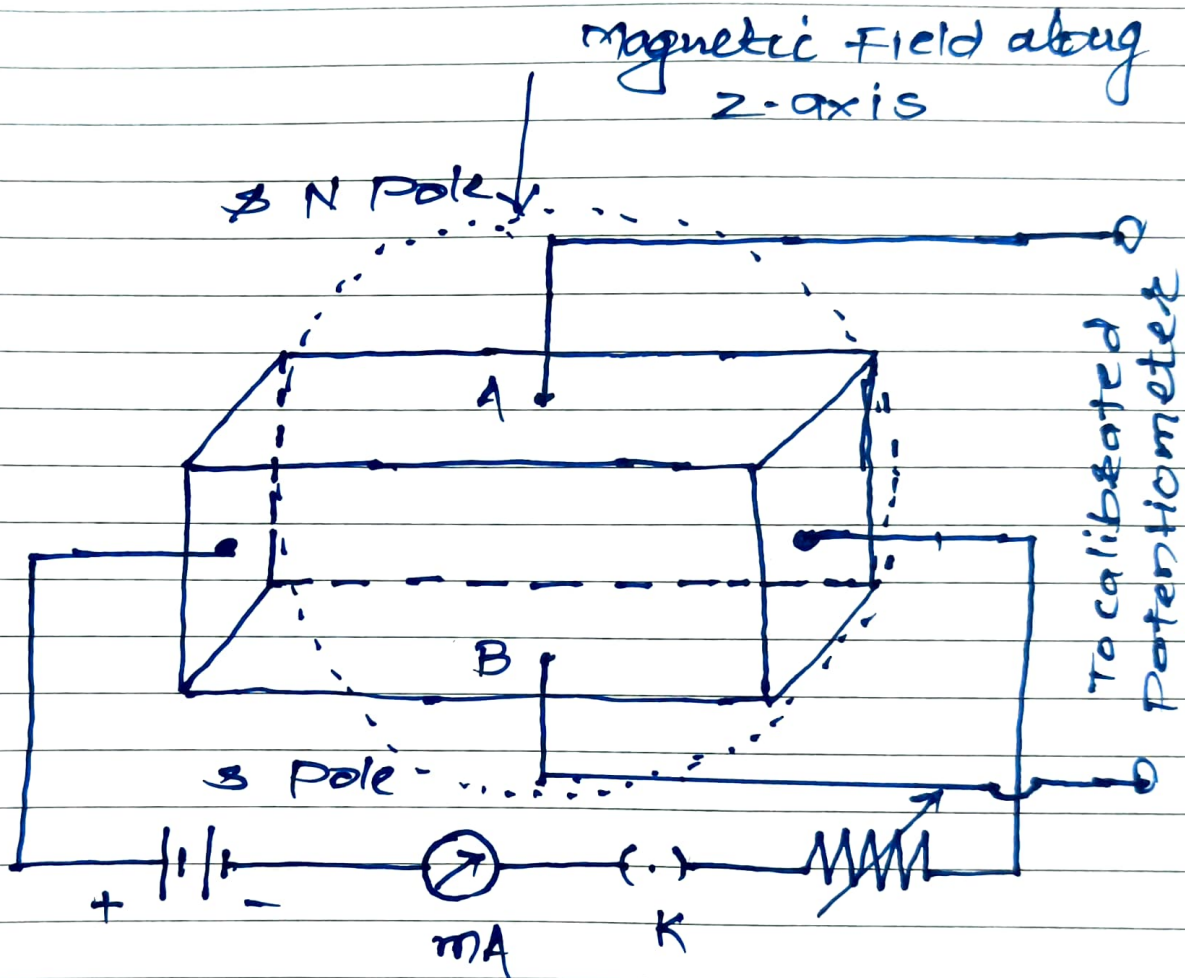 Magnetic Field along
z-axis
N Pole
A
To calibrated
Potentiometer
B
S Pole
+
-
mA
K